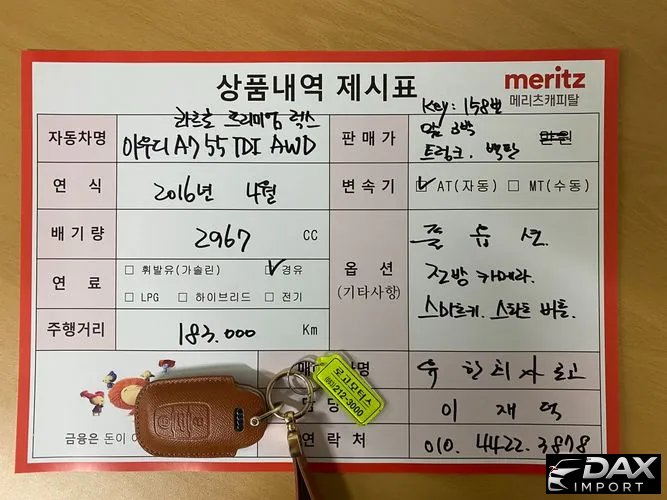 상품내역 제시표
meritz
메리츠캐피탈
Key: 158번
자동차명
콰트로 프리미엄 럭스
아우디 A7 55 TDI AWD
판매가
앞 3박
트렁크. 백판
만원
연 식
2016년 4월
변속기
☑ AT(자동) □ MT(수동)
배기량
2967 CC
옵 션
(기타사항)
풀 옵 션.
전방 카메라.
스마트키. 스타트 버튼.
연 료
□ 휘발유(가솔린) ☑ 경유
□ LPG □ 하이브리드 □ 전기
주행거리
183.000 Km
유 한 회 사 로고
로고모터스
(063)212-3000
이 재 덕
금융은 돈이
연락처
010. 4422. 3878
DAX
IMPORT